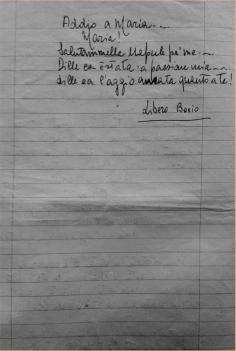 Addio a Maria...
Maria!
Salutammella Napule pe' me...
Dille ca è stata 'a passione mia...
dille ca l'aggio amata quanto a te!
Libero Bovio